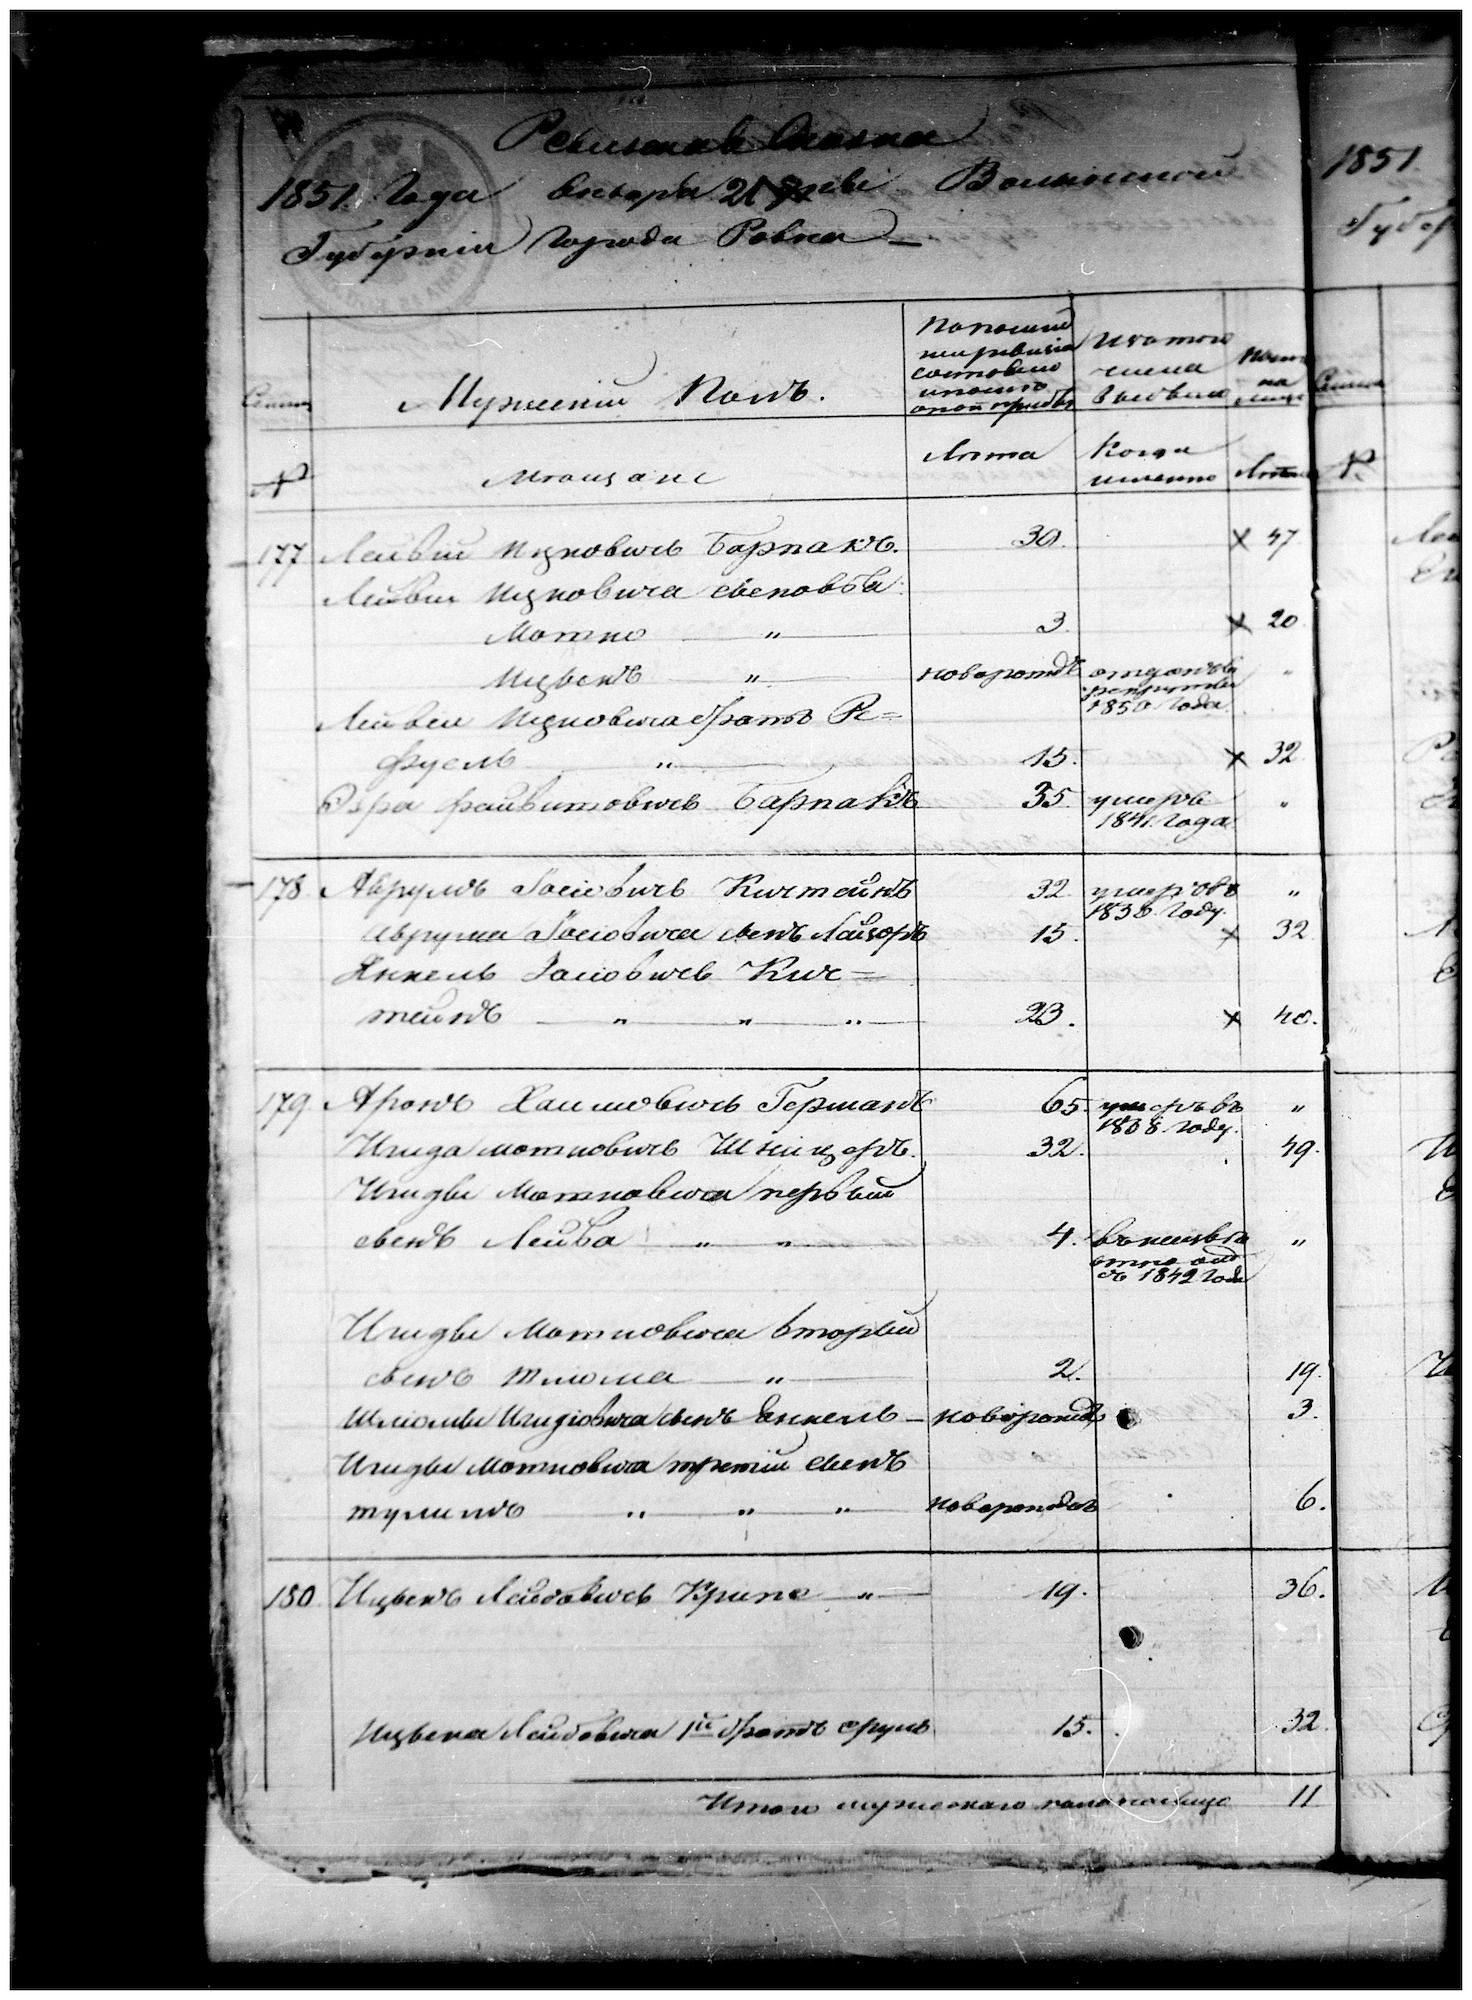 Ревизская Сказка
1851. Года Генваря 21 дня Волынской
Губернии города Ровна
1851.
Губер
Семьи
Мужеский Полъ.
По последней
ревизии
состояло
и после
оной прибыло
Изъ того
числа
выбыло
Ныне
на
лицо
Семьи
№
Мещане
Лета
Когда
именно
Лета
№
177 Лейбъ Ицковичь Барпакъ. 30. × 47
Лейбы Ицковича сыновья
Мотио " 3. × 20
Ицыкъ " новорожд. отданъ въ рекруты 1850 года "
Лейбы Ицковича братъ Ре=
фуель " 15. × 32
Эзра Файвишовичь Барпакъ 35. умеръ 1841. года "
178 Аврумъ Іосіовичь Киштейнъ 32 умеръ въ 1838. году. "
Аврума Іосіовича сынъ Лейзоръ 15. × 32
Янкель Іосіовичь Киш=
тейнъ " " " 23. × 40.
179. Аронъ Хаимовичь Германъ 65. умеръ въ 1838. году. "
Шида Мотиовичь Шницеръ. 32. 49.
Шиды Мотиовича первый
сынъ Лейба " " 4. въ неизвестно съ 1842 года "
Шиды Мотиовича вторый
сынъ Шлома " 2. 19.
Шломы Шидіовича сынъ Янкель новорожд. 3.
Шиды Мотиовича третий сынъ
" " " новорожд. 6.
180 Ицыкъ Лейбовичь Крипе " 19. 36.
Ицыка Лейбовича 1й братъ Сруль 15. 32.
Итого мужескаго пола налицо 11